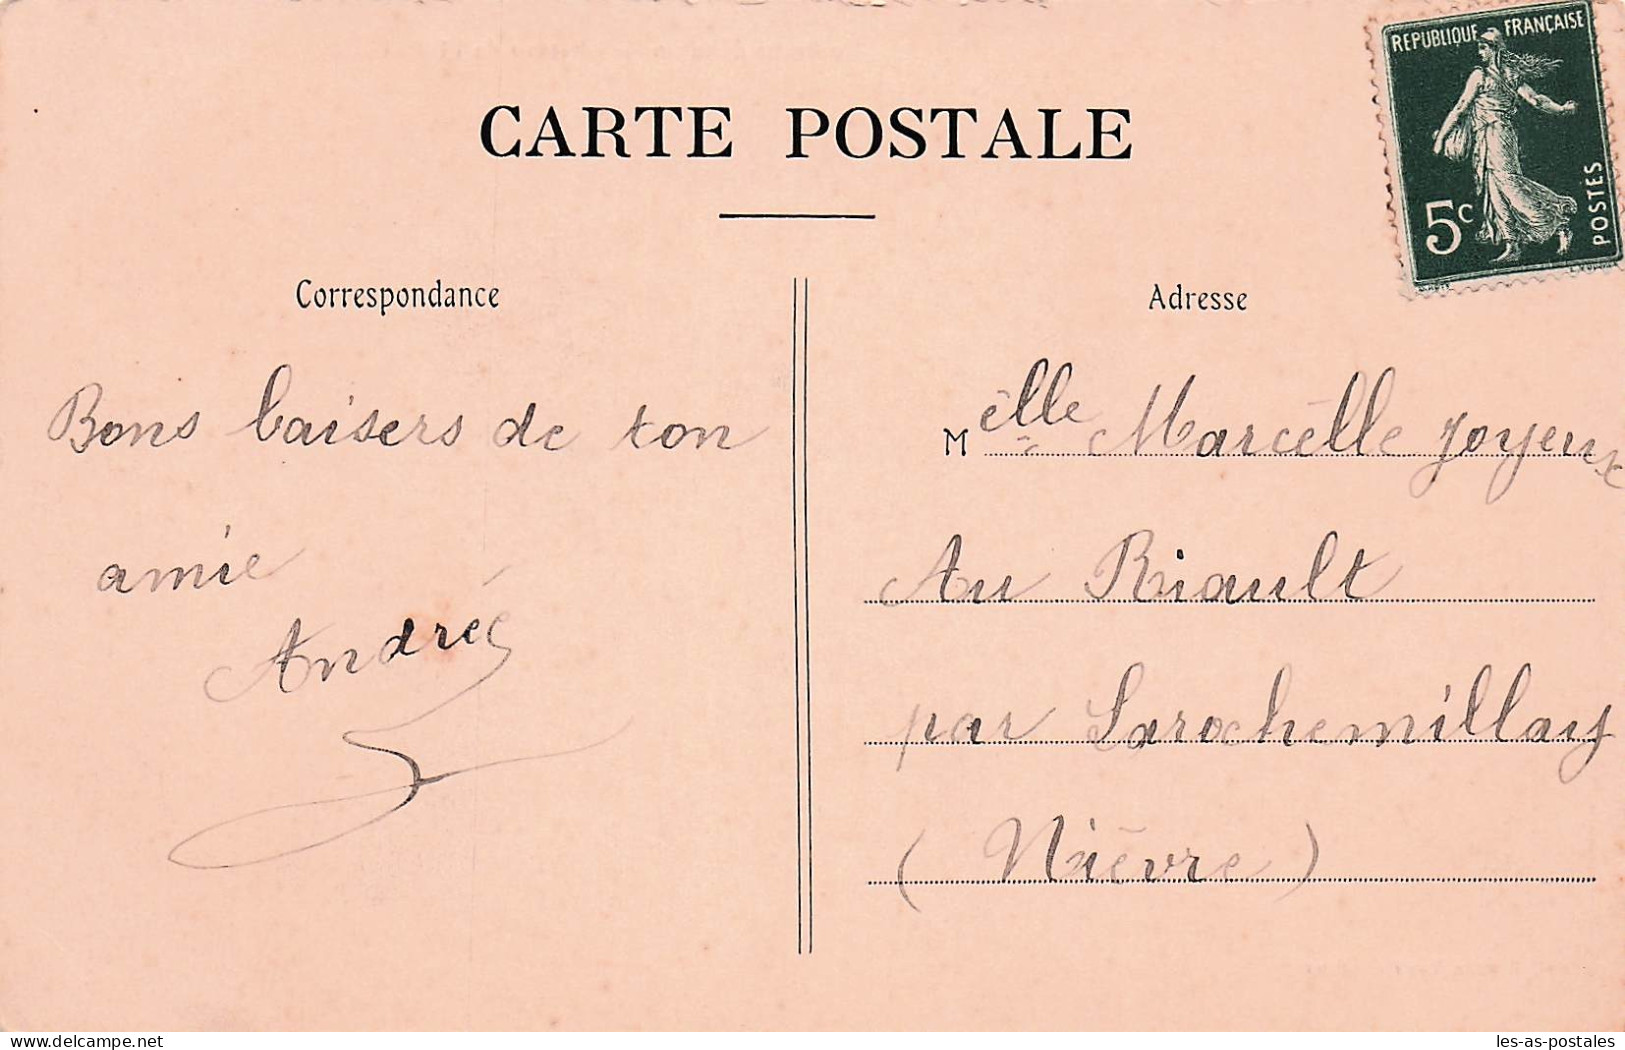 CARTE POSTALE
REPUBLIQUE FRANÇAISE
5c
POSTES
Correspondance
Bons baisers de ton
amie
Andrée
Adresse
Melle Marcelle Joyeux
Au Riault
par Larochemillay
(Nièvre)
delcampe.net
les-as-postales